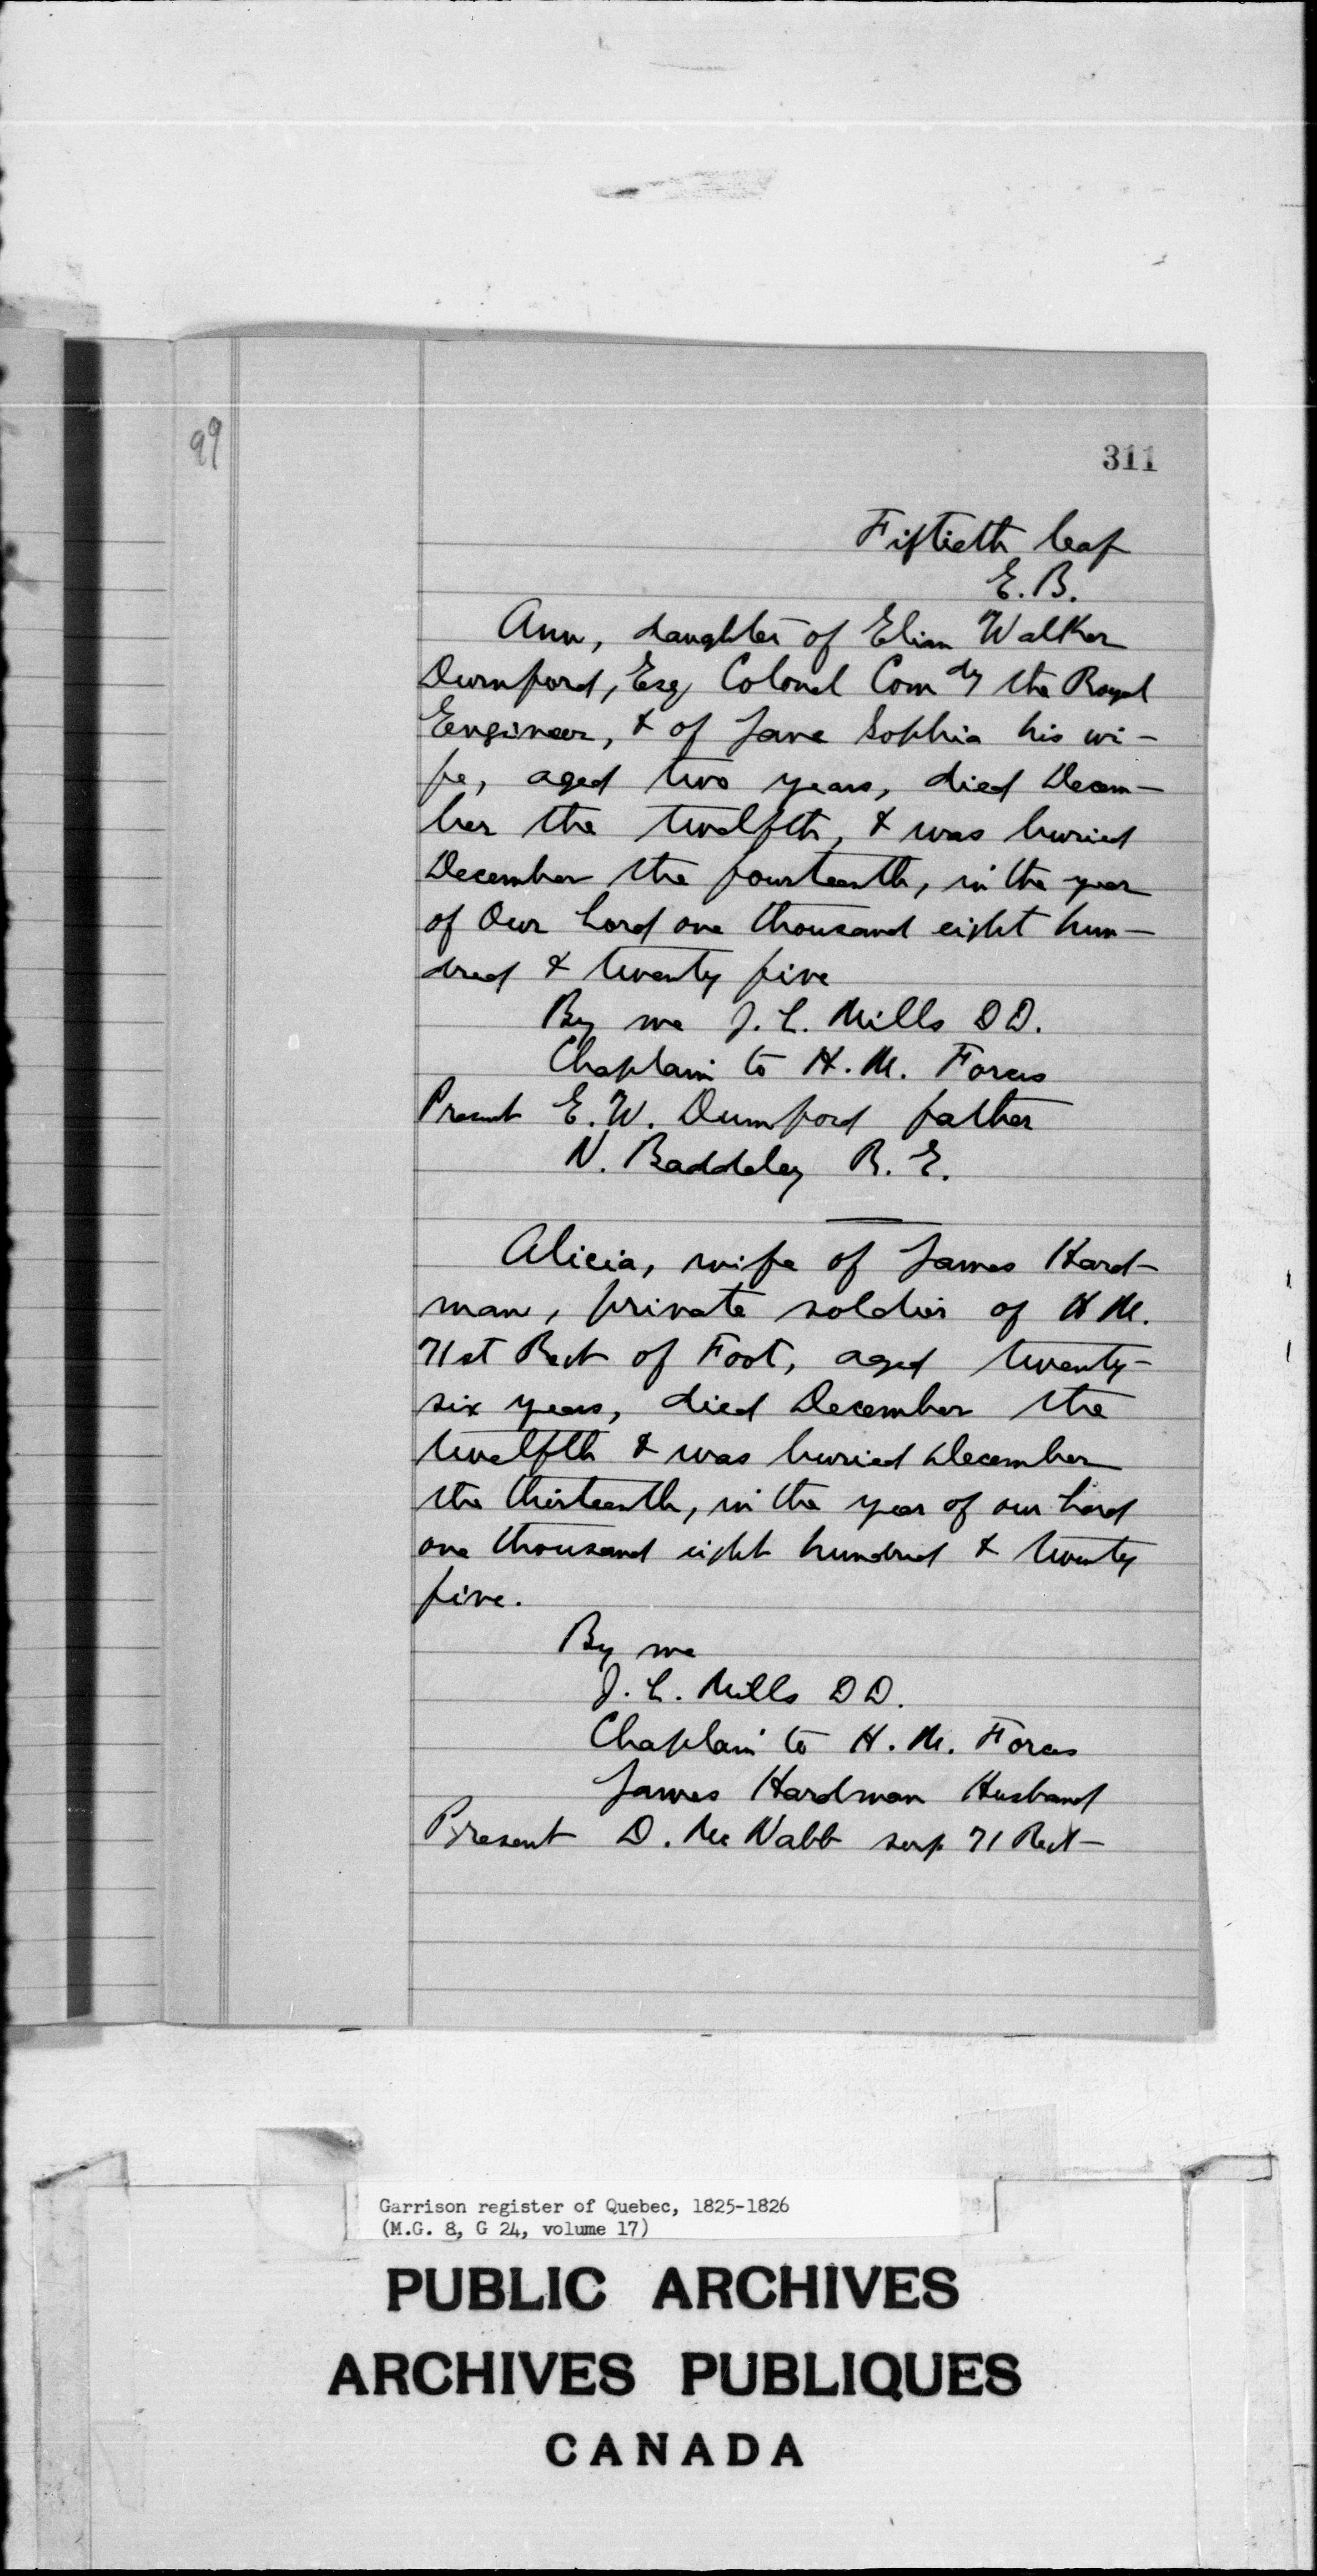 99
311
Fiftieth leaf
E. B.
Ann, daughter of Elian Walker
Durnford, Esq Colonel Comdg the Royal
Eengineer, & of Jane Sophia his wi-
fe, aged two years, died Decem-
ber the twelfth, & was buried
December the fourteenth, in the year
of Our Lord one thousand eight hun-
dred & twenty five
By me J. L. Mills D D.
Chaplain to H. M. Forces
Present E. W. Durnford father
N. Baddeley R. E.
Alicia, wife of James Hard-
man, private soldier of H M.
71st Regt of Foot, aged twenty-
six years, died December the
twelfth & was buried December
the thirteenth, in the year of our Lord
one thousand eight hundred & twenty
five.
By me
J. L. Mills D D.
Chaplain to H. M. Forces
James Hardman Husband
Present D. Mc Nabb serg 71 Regt
Garrison register of Quebec, 1825-1826
(M.G. 8, G 24, volume 17)
PUBLIC ARCHIVES
ARCHIVES PUBLIQUES
CANADA